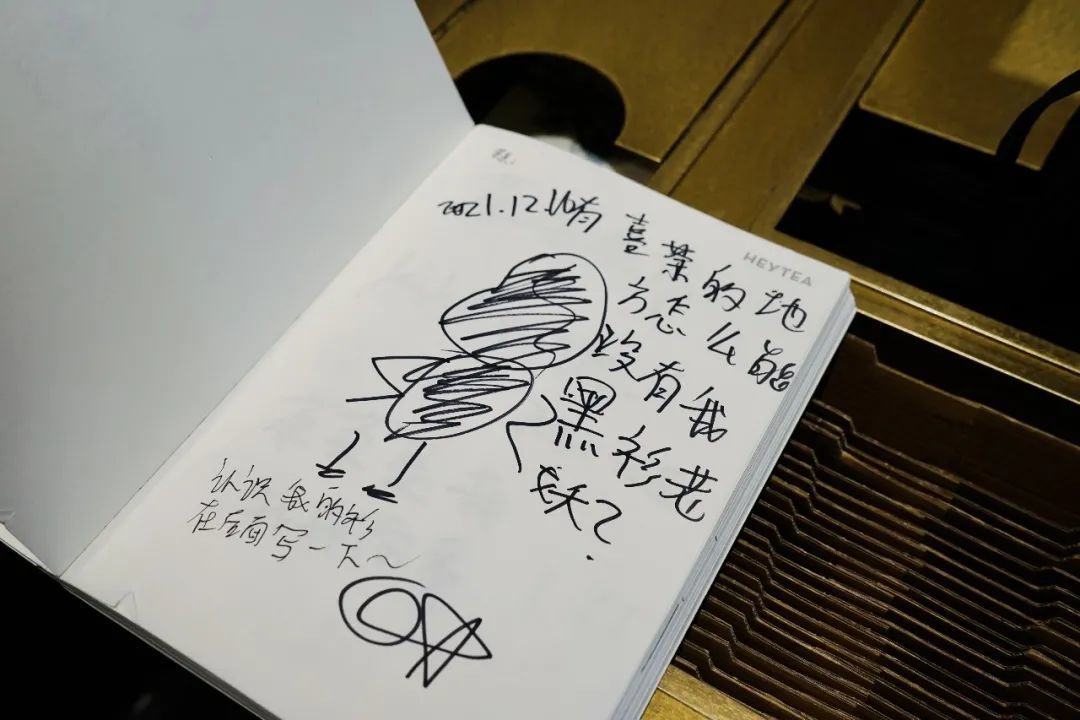 HEYTEA
2021.12.16有喜茶的地
方怎么能
没有我
黑衫老
妖？
认识我的衫
在后面写一下～